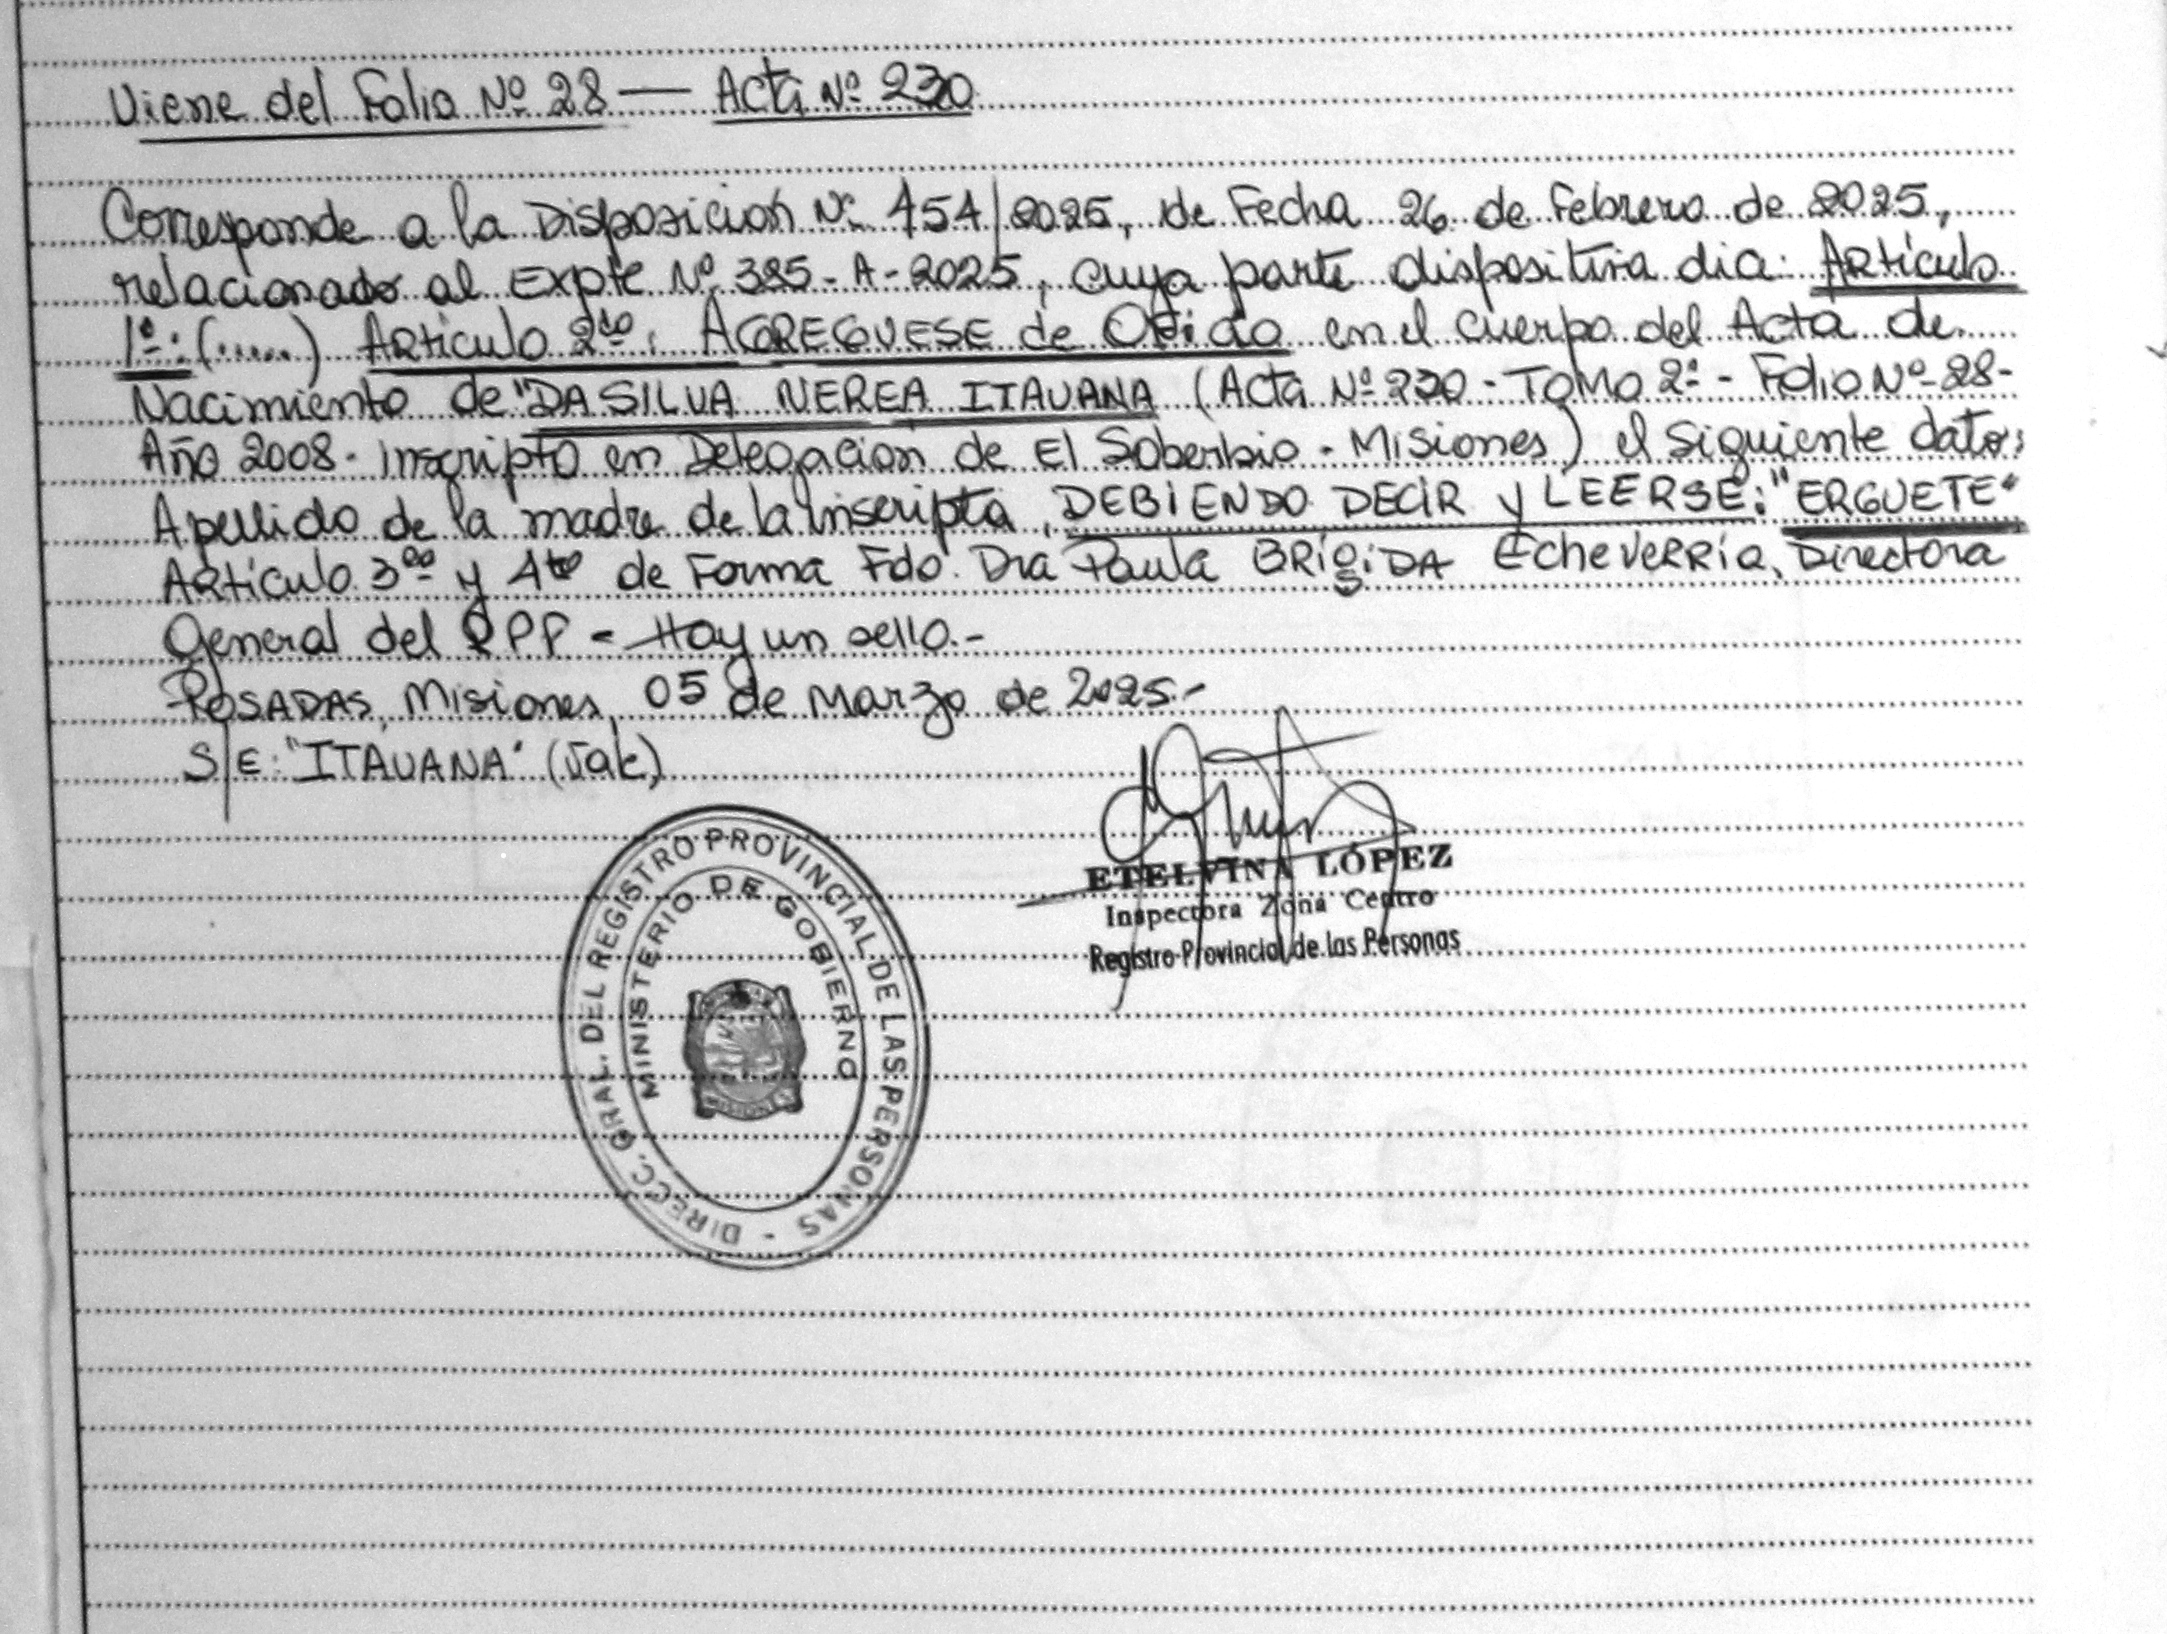 Viene del Folio Nº 28 — Acta Nº 230
Corresponde a la Disposicion Nº 454/2025, de Fecha 26 de Febrero de 2025,
relacionado al Expte Nº 385-A-2025, cuya parte dispositiva dia: Artículo
1º: (.....) Artículo 2do: AGREGUESE de Oficio en el cuerpo del Acta de
Nacimiento de "DA SILVA NEREA ITAUANA (Acta Nº 230 - TOMO 2º - Folio Nº 28-
Año 2008. Inscripto en Delegacion de El Soberbio - Misiones) el siguiente dato:
Apellido de la madre de la inscripta, DEBIENDO DECIR y LEERSE: "ERGUETE"
Artículo 3ro y 4to de Forma Fdo. Dra Paula BRÍGIDA Echeverría, Directora
General del RPP - Hay un sello.-
POSADAS, Misiones, 05 de Marzo de 2025.-
S/E: "ITAUANA" (Vale)
ETELVINA LÓPEZ
Inspectora Zona Centro
Registro Provincial de las Personas
DIRECC. GRAL. DEL REGISTRO PROVINCIAL DE LAS PERSONAS -
MINISTERIO DE GOBIERNO
MISIONES